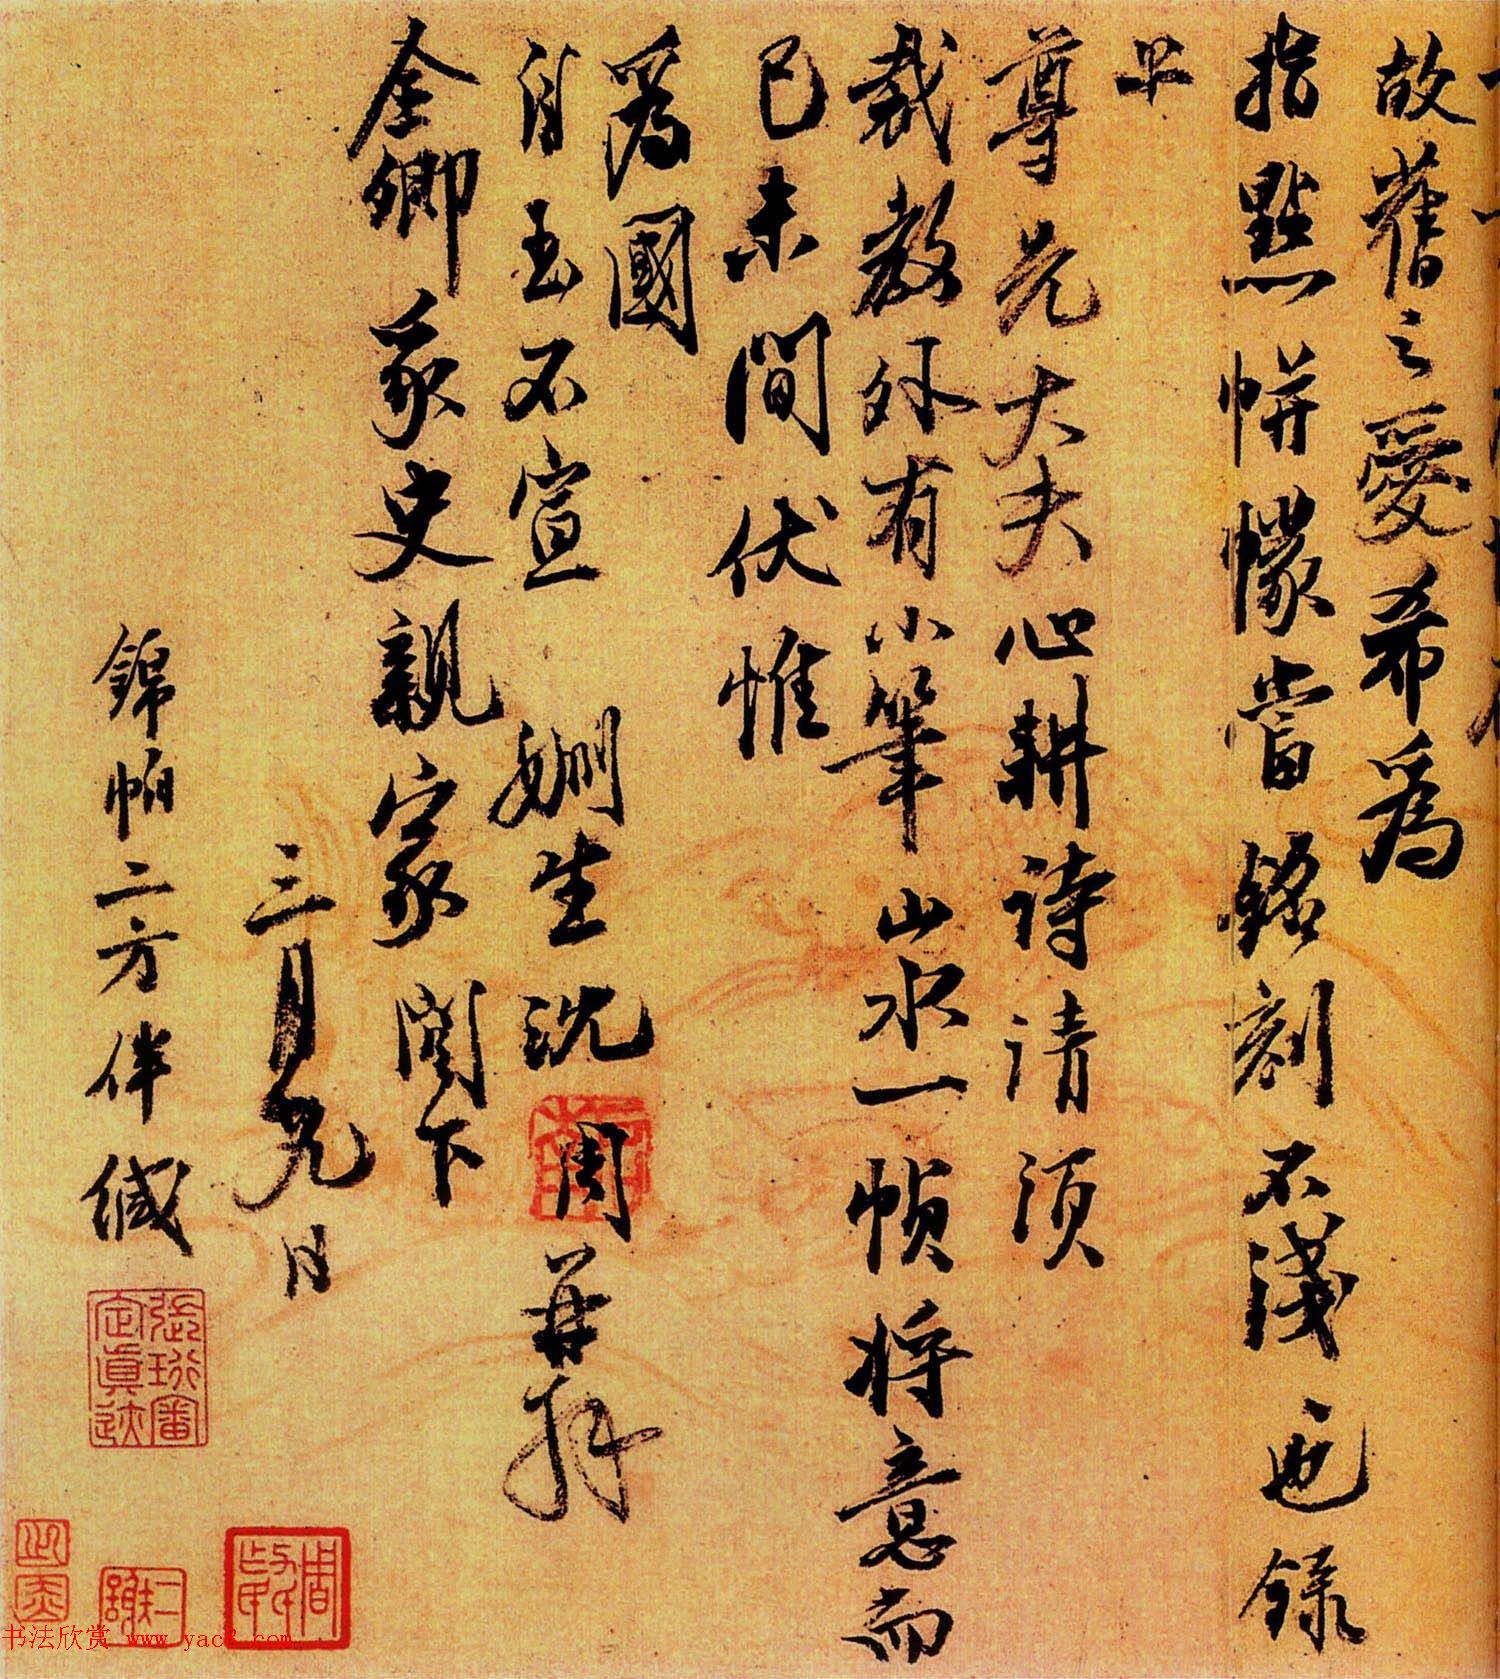 故舊之愛希為
指點帡幪當銘刻不淺也錄
上
尊先大夫心耕詩請須
裁教外有小筆山水一幀將意而
已未間伏惟
為國
自玉不宣 姻生沈周再拜
全卿冢史親家閣下
三月九日
錦帕二方伴緘
張珩審定真跡
書法欣賞 www.yac8.com